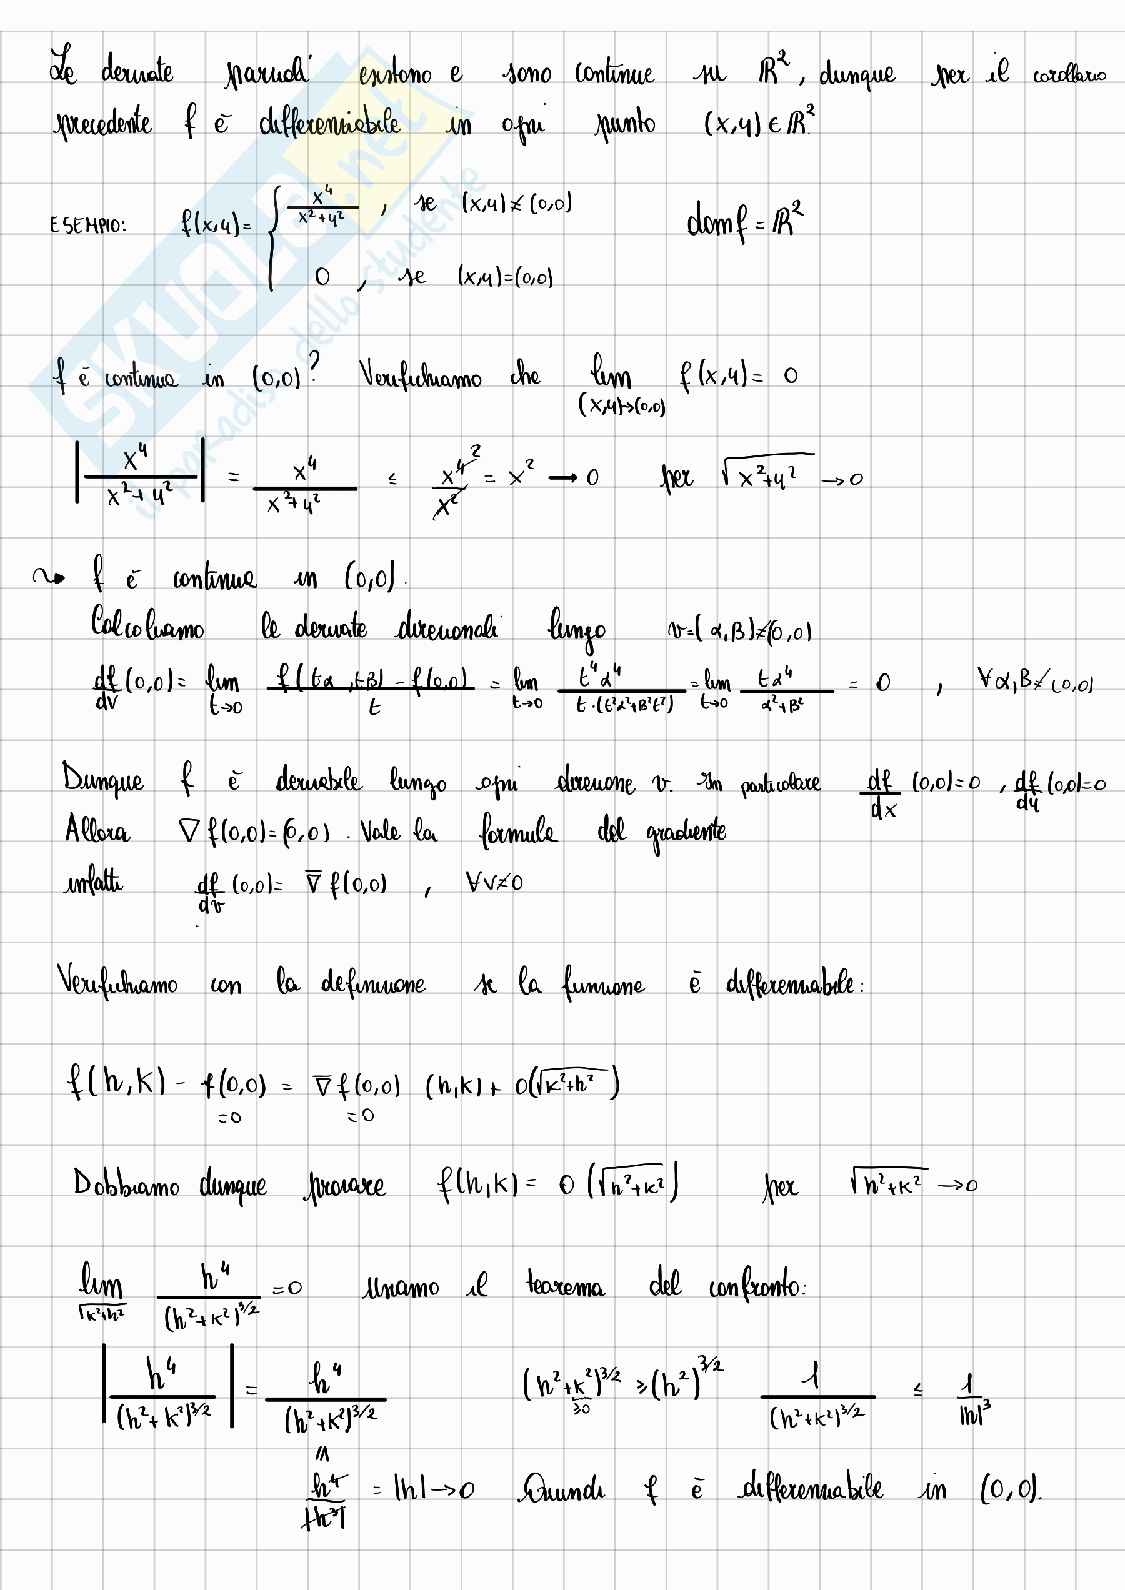 Le derivate parziali esistono e sono continue su ℝ², dunque per il corollario
precedente f è differenziabile in ogni punto (x,y) ∈ ℝ²
ESEMPIO: f(x,y) = { x⁴/(x²+y²) , se (x,y) ≠ (0,0) dom f = ℝ²
0 , se (x,y)=(0,0)
f è continua in (0,0)? Verifichiamo che lim (x,y)→(0,0) f(x,y) = 0
|x⁴/(x²+y²)| = x⁴/(x²+y²) ≤ x⁴/x² = x² → 0 per √(x²+y²) → 0
⤳ f è continua in (0,0).
Calcoliamo le derivate direzionali lungo v=(α,β)≠(0,0)
df/dv (0,0) = lim t→0 (f(tα,tβ) - f(0,0))/t = lim t→0 t⁴α⁴/(t·(t²α²+β²t²)) = lim t→0 tα⁴/(α²+β²) = 0 , ∀α,β≠(0,0)
Dunque f è derivabile lungo ogni direzione v. In particolare df/dx (0,0)=0 , df/dy (0,0)=0
Allora ∇f(0,0)=(0,0). Vale la formula del gradiente
infatti df/dv (0,0) = ∇f(0,0) , ∀v≠0
Verifichiamo con la definizione se la funzione è differenziabile:
f(h,k) - f(0,0) = ∇f(0,0) (h,k) + o(√(k²+h²))
=0 =0
Dobbiamo dunque provare f(h,k) = o(√(h²+k²)) per √(h²+k²) → 0
lim √(k²+h²) h⁴/(h²+k²)^3/2 = 0 Usiamo il teorema del confronto:
|h⁴/(h²+k²)^3/2| = h⁴/(h²+k²)^3/2 (h²+k²)^3/2 ≥ (h²)^3/2 1/(h²+k²)^3/2 ≤ 1/|h|³
≥0
≤
h⁴/|h³| = |h| → 0 Quindi f è differenziabile in (0,0).
SKUOLA.net
il paradiso dello studente